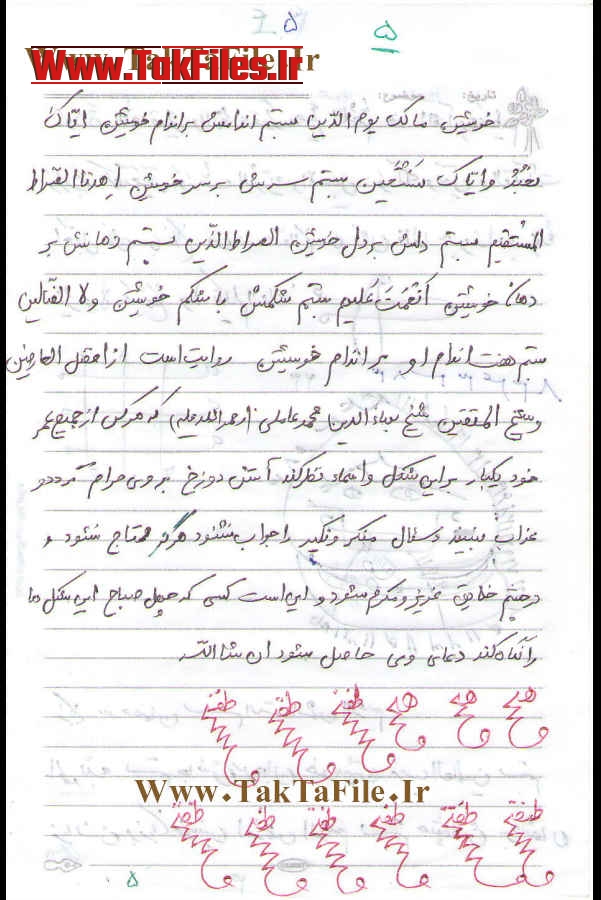 ۵ ۵
Www.TakTaFile.Ir
Www.TakFiles.Ir
تاریخ: موضوع:
خویشتن مالک یوم الدین بستم اندامش بر اندام خویشتن ایاک
نعبد و ایاک نستعین بستم سرش بر سر خویشتن اهدنا الصراط
المستقیم بستم دلش بر دل خویشتن الصراط الذین بستم دهانش بر
دهان خویشتن انعمت علیهم بستم شکمش با شکم خویشتن ولا الضالین
ستم هفت اندام او بر اندام خویشتن روایت است از افضل العارفین
و شیخ المتقین شیخ بهاء الدین محمد عاملی (رحمه الله علیه) که هر کس از جمیع عمر
خود یکبار بر این شکل و اسماء نظر کند آتش دوزخ بر وی حرام گردد و
عذاب نبیند و سئال منکر و نکیر را جواب شنود هرگز محتاج نشود و
در چشم خلایق عزیز و مکرم شود و این است کسی که چهل صباح این شکل ها
را نگاه کند دعای وی حاصل شود ان شا الله
Www.TakTaFile.Ir
۵